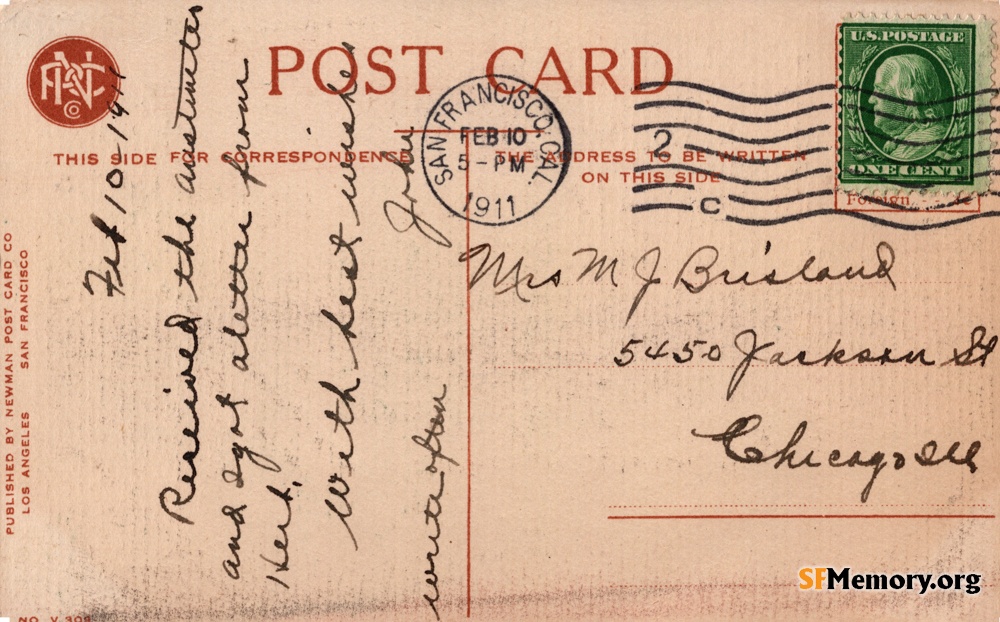 POST CARD
THIS SIDE FOR CORRESPONDENCE
THE ADDRESS TO BE WRITTEN
ON THIS SIDE
SAN FRANCISCO, CAL.
FEB 10
5-PM
1911
2
C
U.S. POSTAGE
ONE CENT
Foreign
PUBLISHED BY NEWMAN POST CARD CO
LOS ANGELES SAN FRANCISCO
Feb 10-1911
Received the
and I got a letter from
Herb.
With best wishes
John
write often
Mrs M J Brisland
5450 Jackson St
Chicago Ill
NO. V 309
SFMemory.org